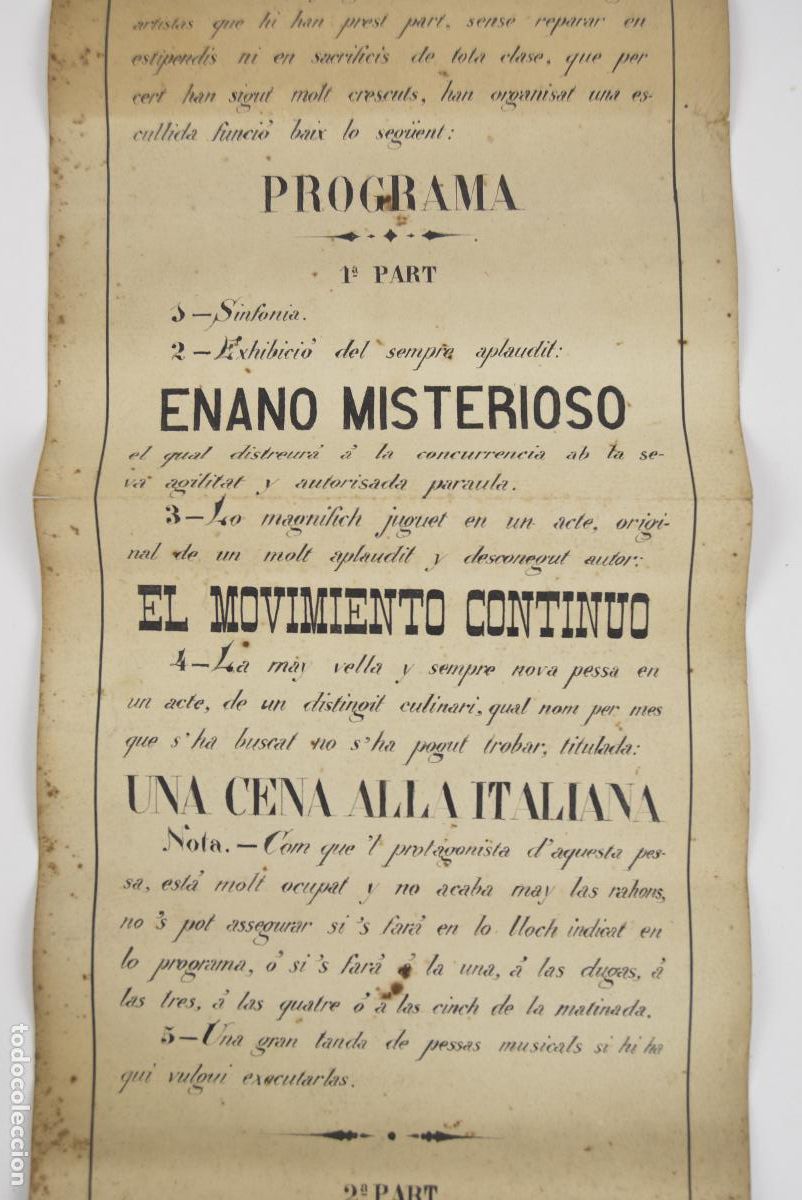 artistas que hi han prest part, sense reparar en
estipendis ni en sacrificis de tota clase, que per
cert han sigut molt crescuts, han organisat una es-
cullida funció baix lo següent:
PROGRAMA
1ª PART
1—Sinfonia.
2—Exhibició del sempre aplaudit:
ENANO MISTERIOSO
el qual distreurá á la concurrencia ab la se-
va agilitat y autorisada paraula.
3—Lo magnifich juguet en un acte, origi-
nal de un molt aplaudit y desconegut autor:
EL MOVIMIENTO CONTINUO
4—La may vella y sempre nova pessa en
un acte, de un distingit culinari, qual nom per mes
que s'ha buscat no s'ha pogut trobar, titulada:
UNA CENA ALLA ITALIANA
Nota.—Com que 'l protagonista d'aquesta pes-
sa, está molt ocupat y no acaba may las rahons,
no 's pot assegurar si 's fará en lo lloch indicat en
lo programa, ó si 's fará á la una, á las dugas, á
las tres, á las quatre ó á las cinch de la matinada.
5—Una gran tanda de pessas musicals si hi ha
qui vulgui executarlas.
2ª PART
todocoleccion